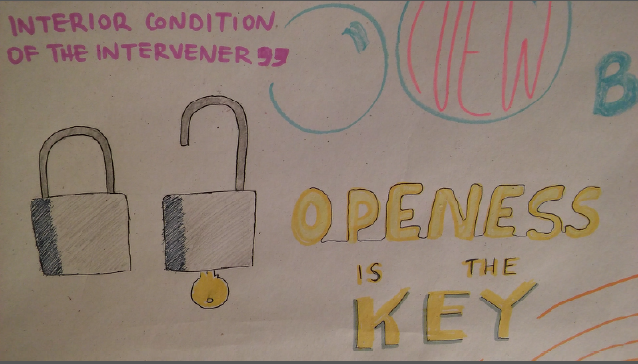 INTERIOR CONDITION
OF THE INTERVENER"
NEW
B
OPENESS
IS THE
KEY